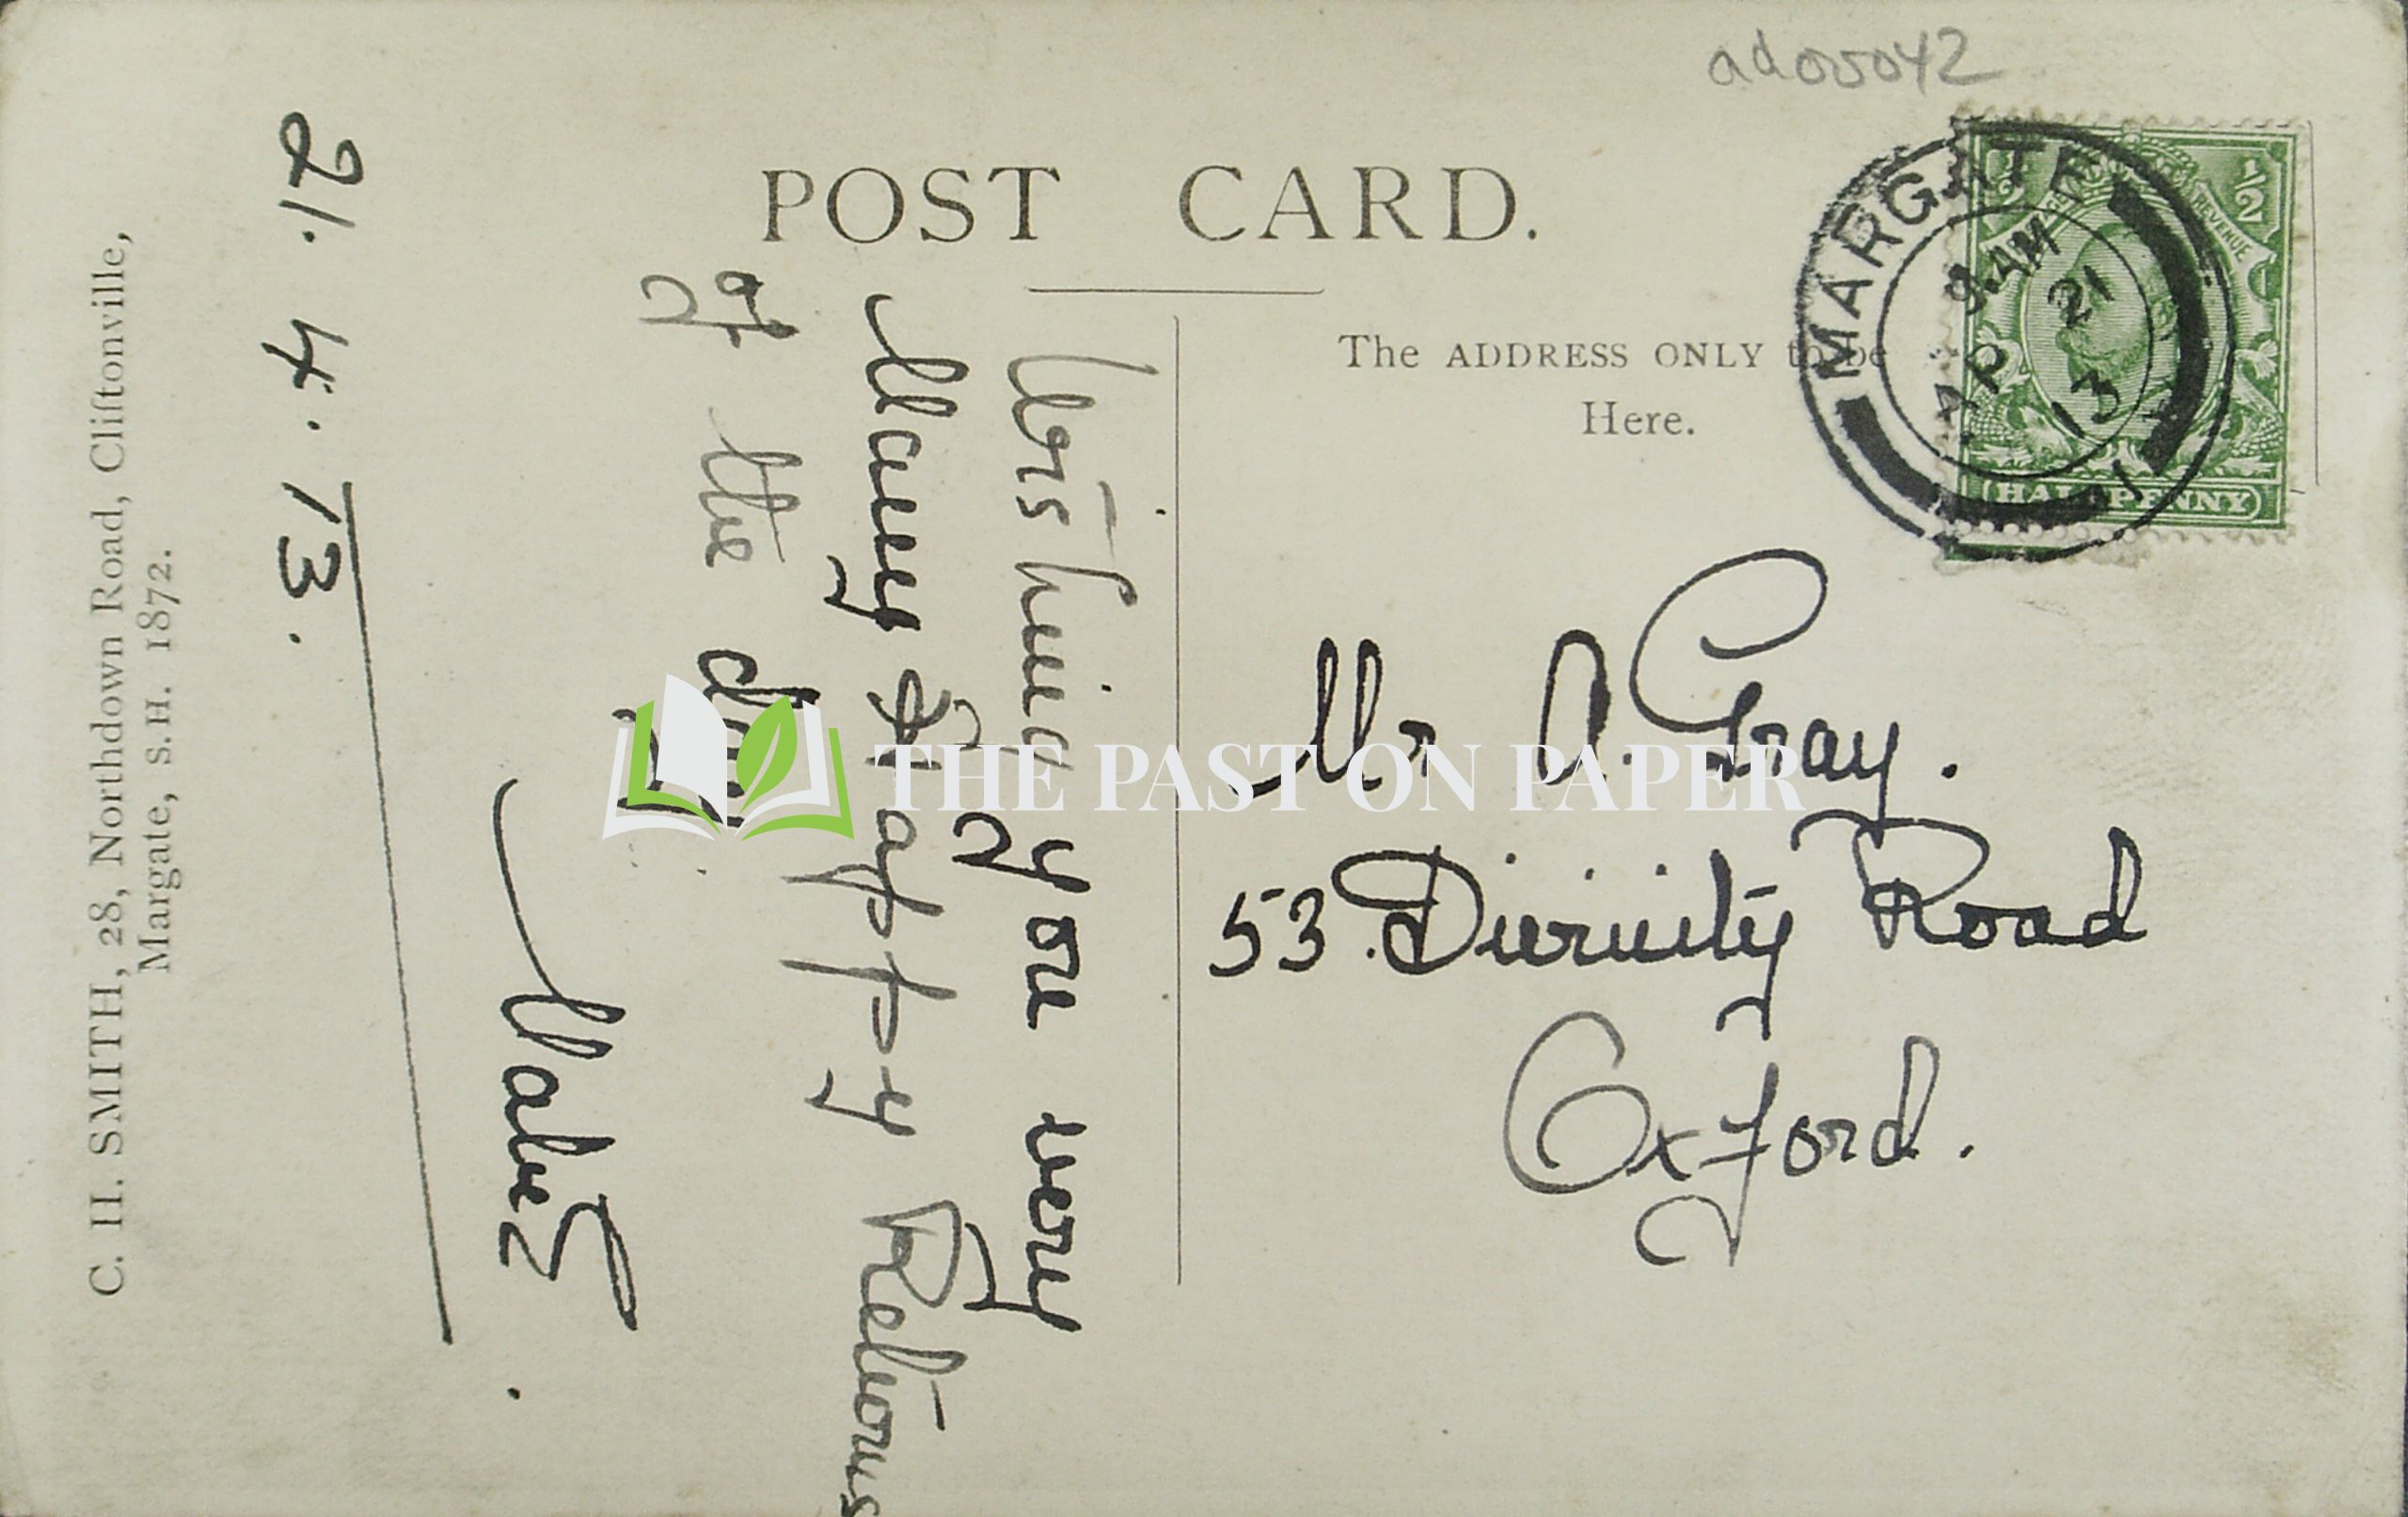 ad05042
POST CARD.
The ADDRESS ONLY to be
Here.
MARGATE
9. AM
21
AP
13
1/2
REVENUE
HALFPENNY
Mr A. Gray.
53. Divinity Road
Oxford.
Wishing you very
Many Happy Returns
of the day.
Mabel.
21. 4. 13.
C. H. SMITH, 28, Northdown Road, Cliftonville,
Margate, S.H. 1872.
THE PAST ON PAPER